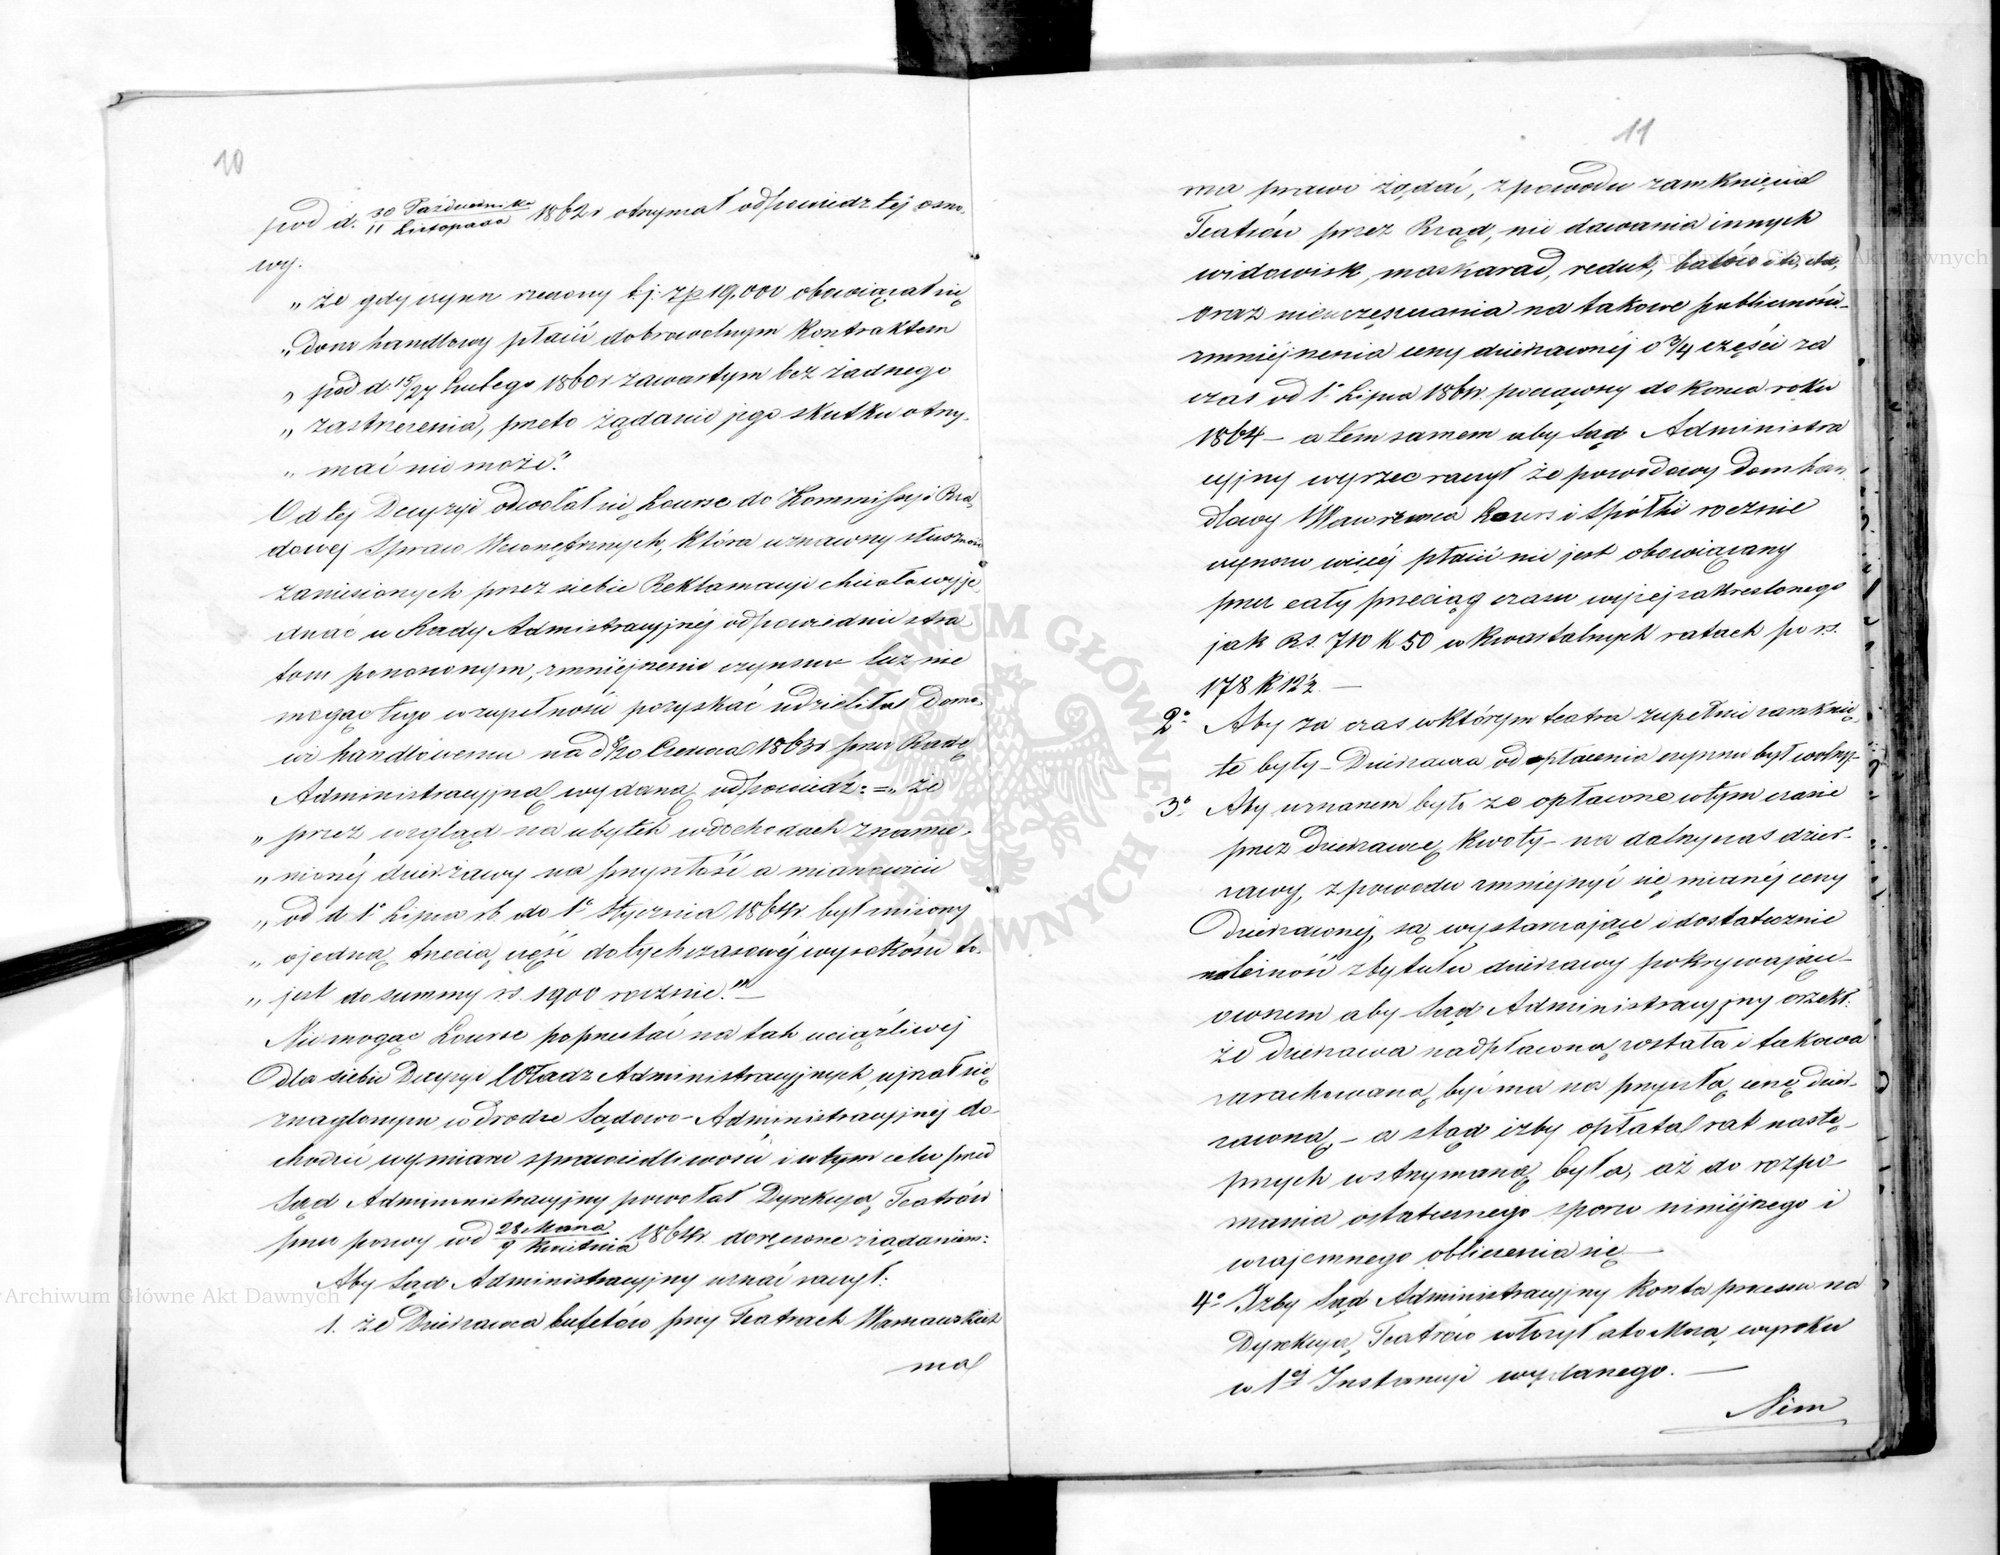 10
pod d. 30 Października / 11 Listopada 1862r otrzymał odpowiedź tej osno-
wy.
„że gdy czynsz roczny t.j. zp 19,000 obowiązał się
„dom handlowy płacić dobrowolnym kontraktem
„pod d. 15/27 Lutego 1860r zawartym bez żadnego
„zastrzeżenia, przeto żądanie jego skutku otrzy-
„mać nie może".
Od tej Decyzyi odwołał się Lourse do Kommissyi Rzą-
dowej Spraw Wewnętrznych, która uznawszy słuszność
zaniesionych przez siebie Reklamacyi chciała wyje-
dnać u Rady Admistracyjnej odpowiednie stra
tom ponoszonym, zmniejszenie czynszu lecz nie
mogąc tego w zupełności pozyskać udzieliła Domo-
wi handlowemu na d 8/20 Czerwca 1863r przez Radę
Administracyjną wydaną odpowiedź: = „że
„przez wzgląd na ubytek w dochodach znamie-
„nionéj dzierżawy na przyszłość a mianowicie
„od d 1o Lipca rb. do 1o Stycznia 1864r. był zniżony
„o jedną trzecią część dotychczasowéj wysokości to-
„jest do summy rs. 1900 rocznie."—
Nie mogąc Lourse poprzestać na tak uciążliwej
dla siebie Decyzyi Władz Administracyjnych, ujrzał się
znaglonym w drodze Sądowo-Administracyjnéj do-
chodzić wymiaru sprawiedliwości i w tym celu przed
Sąd Administracyjny powołał Dyrekcyą Teatrów
przez pozwy pod 28 Marca / 9 Kwietnia 1864r. doręczone z żądaniem:
Aby Sąd Administracyjny uznać raczył:
1. że Dzierżawca bufetów przy Teatrach Warszawskich
ma
11
ma prawo żądać, z powodu zamknięcia
Teatrów przez Rząd, nie dawania innych
widowisk, maskarad, redut, balów i t.d.
oraz nieuczęszczania na takowe publiczności
zmniejszenia ceny dzierżawnéj o 3/4 części za
czas od 1o Lipca 1861r. począwszy do końca roku
1864 — a tem samem aby Sąd Administra
cyjny wyrzec raczył że powodowy Dom han-
dlowy Wawrzeńca Lours i Spółki rocznie
czynszu więcéj płacić nie jest obowiązany
przez cały przeciąg czasu wyżej zakreślonego
jak Rs. 710 k 50 w kwartalnych ratach po rs.
178 k 12 1/2. —
2o Aby za czas w którym teatra zupełnie zamknię-
te były — Dzierżawca od opłacenia czynszu był wolny—
3o Aby uznanem było że opłacone w tym czasie
przez dzierżawcę kwoty — na dalszy czas dzier-
żawy, z powodu zmniejszyć się mianéj ceny
dzierżawnej, są wystarczające i dostatecznie
należność z tytułu dzierżawy pokrywające —
owszem aby Sąd Administracyjny orzekł:
że dzierżawa nadpłaconą została i takowa
zarachowaną być ma na przyszłą cenę dzier-
żawną, — a stąd iżby opłata rat nastę-
pnych wstrzymaną była, aż do rozpo
znania ostatecznego sporu niniejszego i
wzajemnego obliczenia się —
4o Iżby Sąd Administracyjny koszta procesu na
Dyrekcyą Teatrów włożył a to Mocą wyroku
w 1éj Instancyi wydanego. —
Nim
Archiwum Główne Akt Dawnych
Archiwum Główne Akt Dawnych
ARCHIWUM GŁÓWNE AKT DAWNYCH